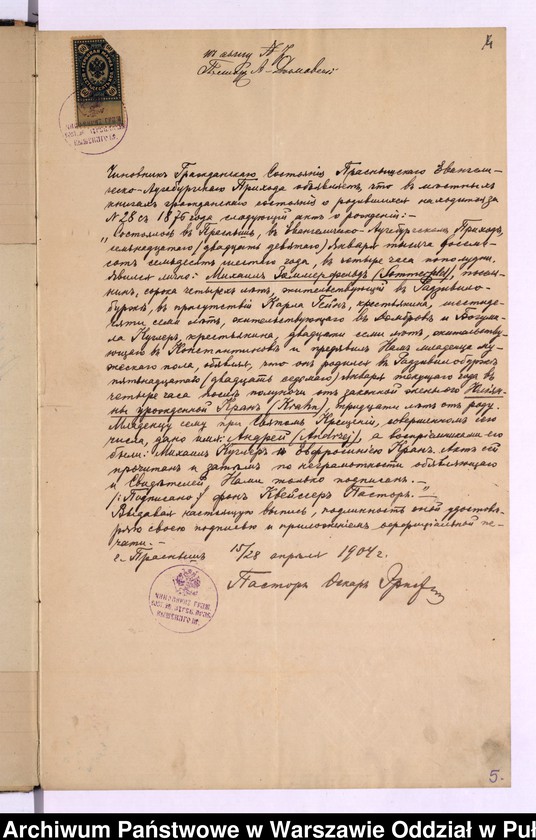 къ акту № 7
Чиновникъ Гражданскаго Состоянія Праснышскаго Евангели-
ческо-Аугсбургскаго Прихода объявляетъ что въ мѣстныхъ
книгахъ гражданскаго состоянія о родившихся находится за
№ 28 съ 1876 года слѣдующій актъ о рожденіи:-
"Состоялось въ Праснышѣ, въ Евангелическо-Аугсбургскомъ Приходѣ,
семнадцатаго/двадцать девятаго/ Января тысяча восемь-
сотъ семьдесятъ шестого года, въ четыре часа пополудни.
Явился лично: Михаилъ Заммерфельдъ (Sommerfeld), посе-
лянинъ, сорока четырехъ лѣтъ, жительствующій въ Радзивило-
буржѣ, въ присутствіи Карла крестьянина, шестьде-
сяти семи лѣтъ, жительствующаго въ и Богуми-
ла Куглеръ, крестьянина, двадцати семи лѣтъ, жительству-
ющаго въ Константиновѣ и предъявилъ Намъ младенца му-
жескаго пола, объявляя, что онъ родился въ Радзивилобуржѣ
пятнадцатаго (двадцать седьмого) Января текущаго года въ
четыре часа послѣ полуночи отъ законной жены его
урожденной Кранъ (Krahn), тридцати лѣтъ отъ роду.
Младенцу сему при Святомъ Крещеніи, совершенномъ сего
числа, дано имя: Андрей (Andrzej), а воспріемниками его
были: Михаилъ Куглеръ и Евфросинія Кранъ. Актъ сей
прочитанъ и затѣмъ по неграмотности объявляющаго
и Свидѣтелей, Нами только подписанъ.-
(:Подписано:) фонъ Квейссеръ Пасторъ."
Выдавая настоящую выпись, подлинность оной удостовѣ-
ряю своею подписью и приложеніемъ оффиціальной пе-
чати.-
г. Праснышъ 15/28 апрѣля 1904 г.
Пасторъ Оскаръ
5.
Archiwum Państwowe w Warszawie Oddział w Puł